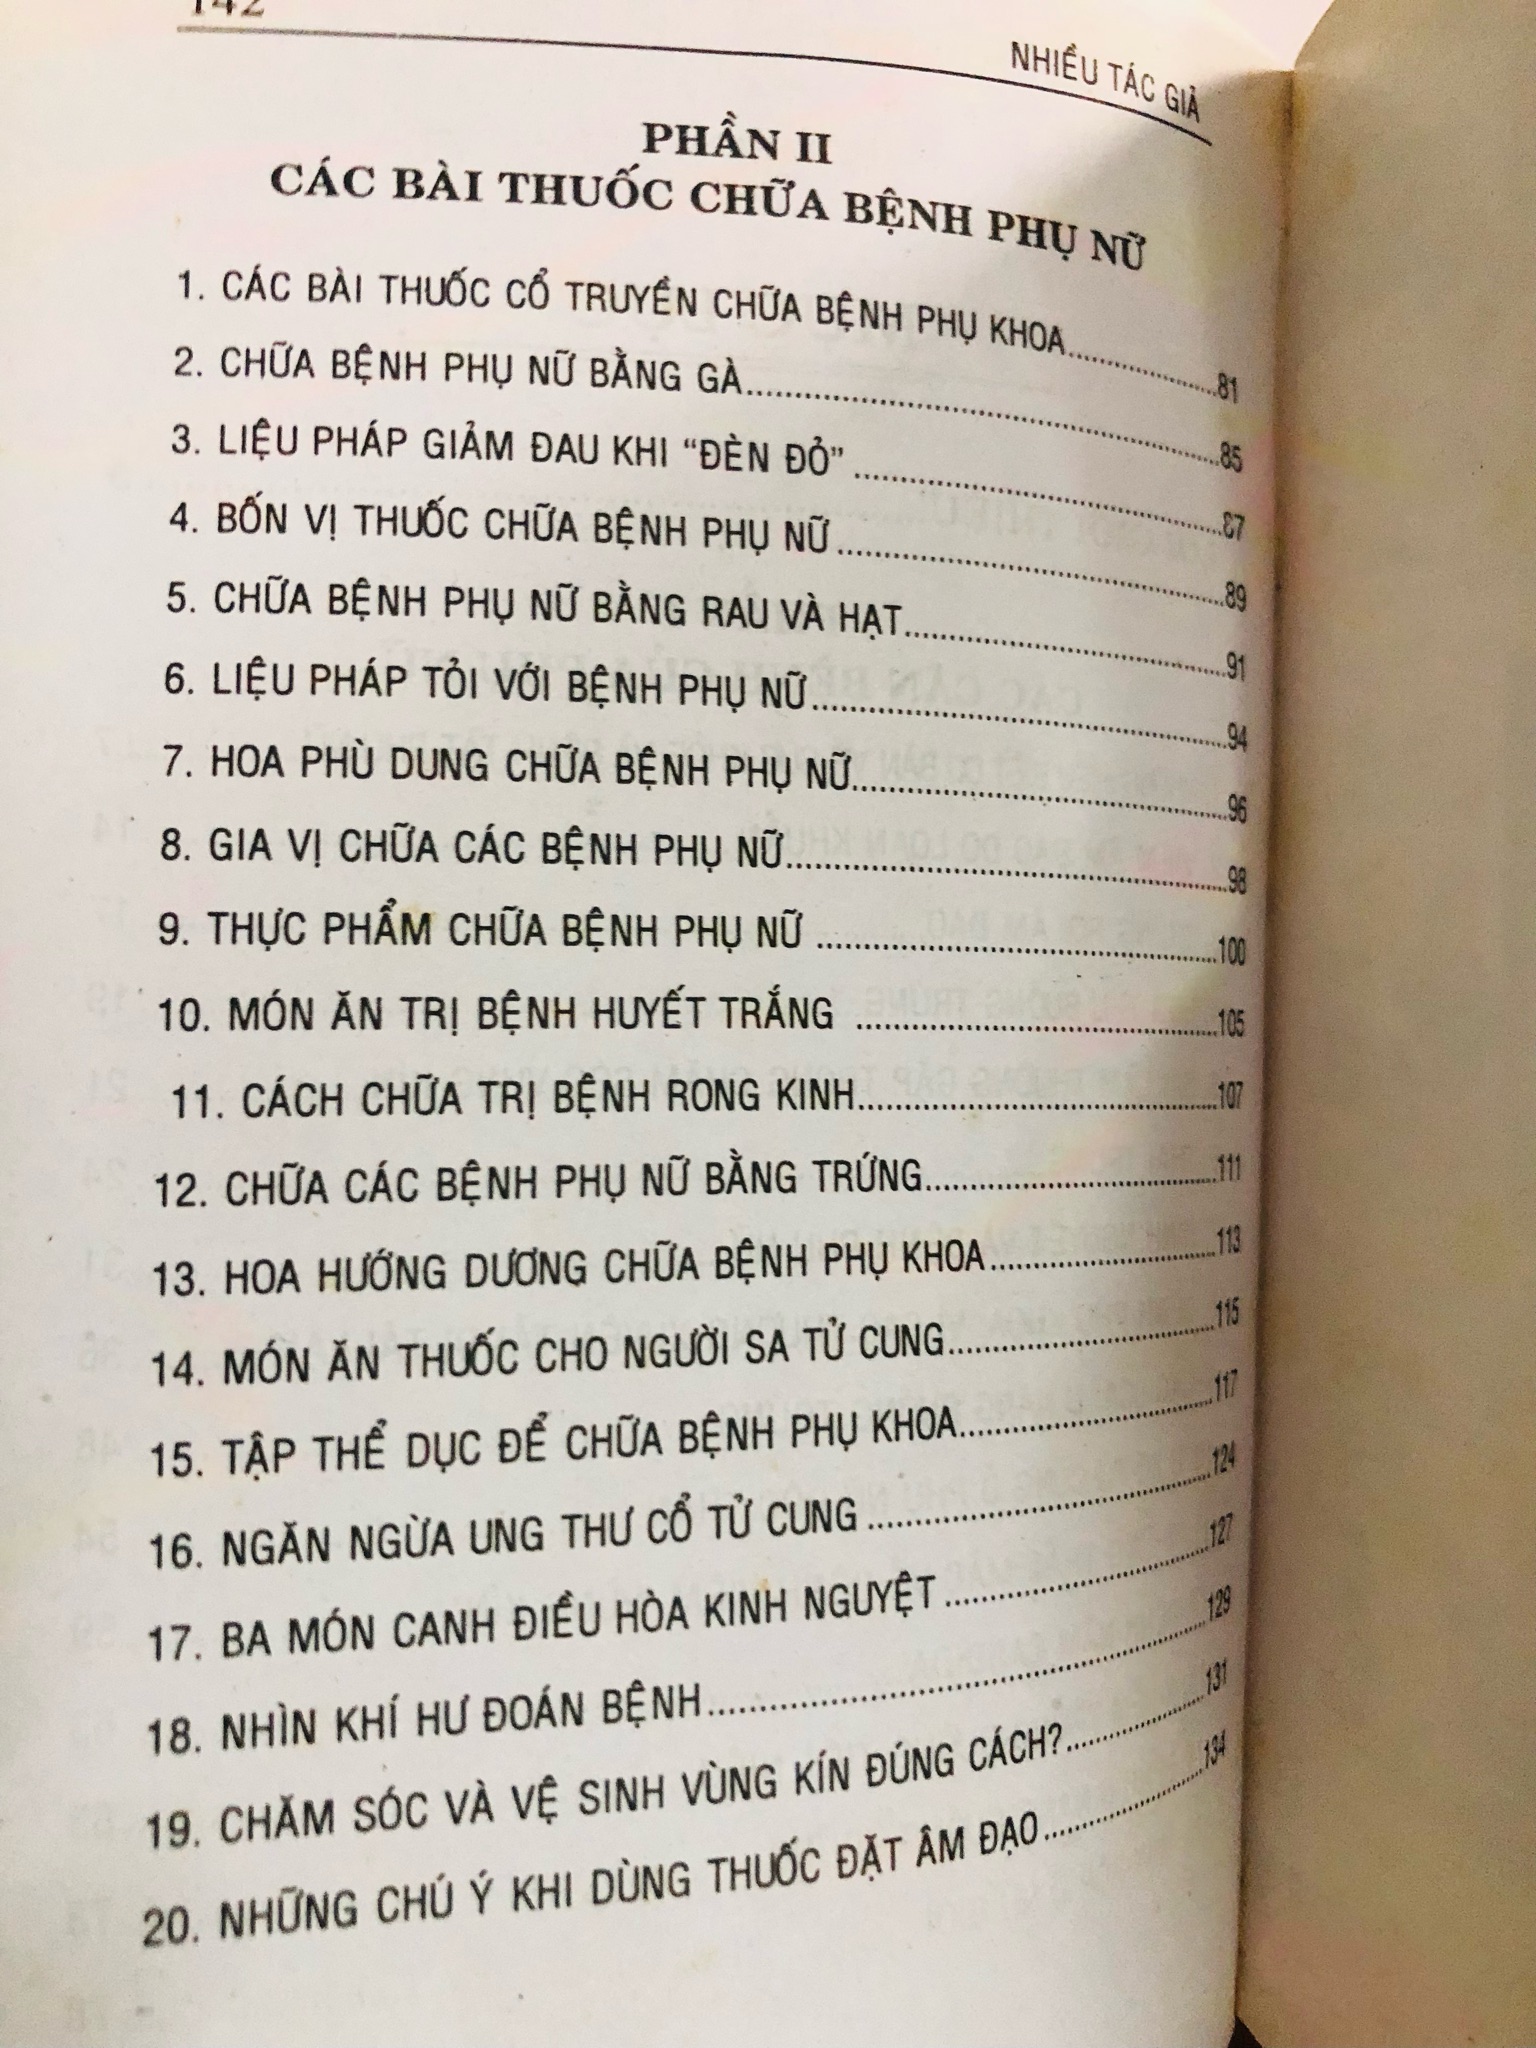 142
NHIỀU TÁC GIẢ
PHẦN II
CÁC BÀI THUỐC CHỮA BỆNH PHỤ NỮ
1. CÁC BÀI THUỐC CỔ TRUYỀN CHỮA BỆNH PHỤ KHOA..........81
2. CHỮA BỆNH PHỤ NỮ BẰNG GÀ..........85
3. LIỆU PHÁP GIẢM ĐAU KHI “ĐÈN ĐỎ” ..........87
4. BỐN VỊ THUỐC CHỮA BỆNH PHỤ NỮ..........89
5. CHỮA BỆNH PHỤ NỮ BẰNG RAU VÀ HẠT..........91
6. LIỆU PHÁP TỎI VỚI BỆNH PHỤ NỮ..........94
7. HOA PHÙ DUNG CHỮA BỆNH PHỤ NỮ..........96
8. GIA VỊ CHỮA CÁC BỆNH PHỤ NỮ..........98
9. THỰC PHẨM CHỮA BỆNH PHỤ NỮ ..........100
10. MÓN ĂN TRỊ BỆNH HUYẾT TRẮNG ..........105
11. CÁCH CHỮA TRỊ BỆNH RONG KINH..........107
12. CHỮA CÁC BỆNH PHỤ NỮ BẰNG TRỨNG..........111
13. HOA HƯỚNG DƯƠNG CHỮA BỆNH PHỤ KHOA..........113
14. MÓN ĂN THUỐC CHO NGƯỜI SA TỬ CUNG..........115
15. TẬP THỂ DỤC ĐỂ CHỮA BỆNH PHỤ KHOA..........117
16. NGĂN NGỪA UNG THƯ CỔ TỬ CUNG ..........124
17. BA MÓN CANH ĐIỀU HÒA KINH NGUYỆT ..........127
18. NHÌN KHÍ HƯ ĐOÁN BỆNH..........129
19. CHĂM SÓC VÀ VỆ SINH VÙNG KÍN ĐÚNG CÁCH?..........131
20. NHỮNG CHÚ Ý KHI DÙNG THUỐC ĐẶT ÂM ĐẠO..........134